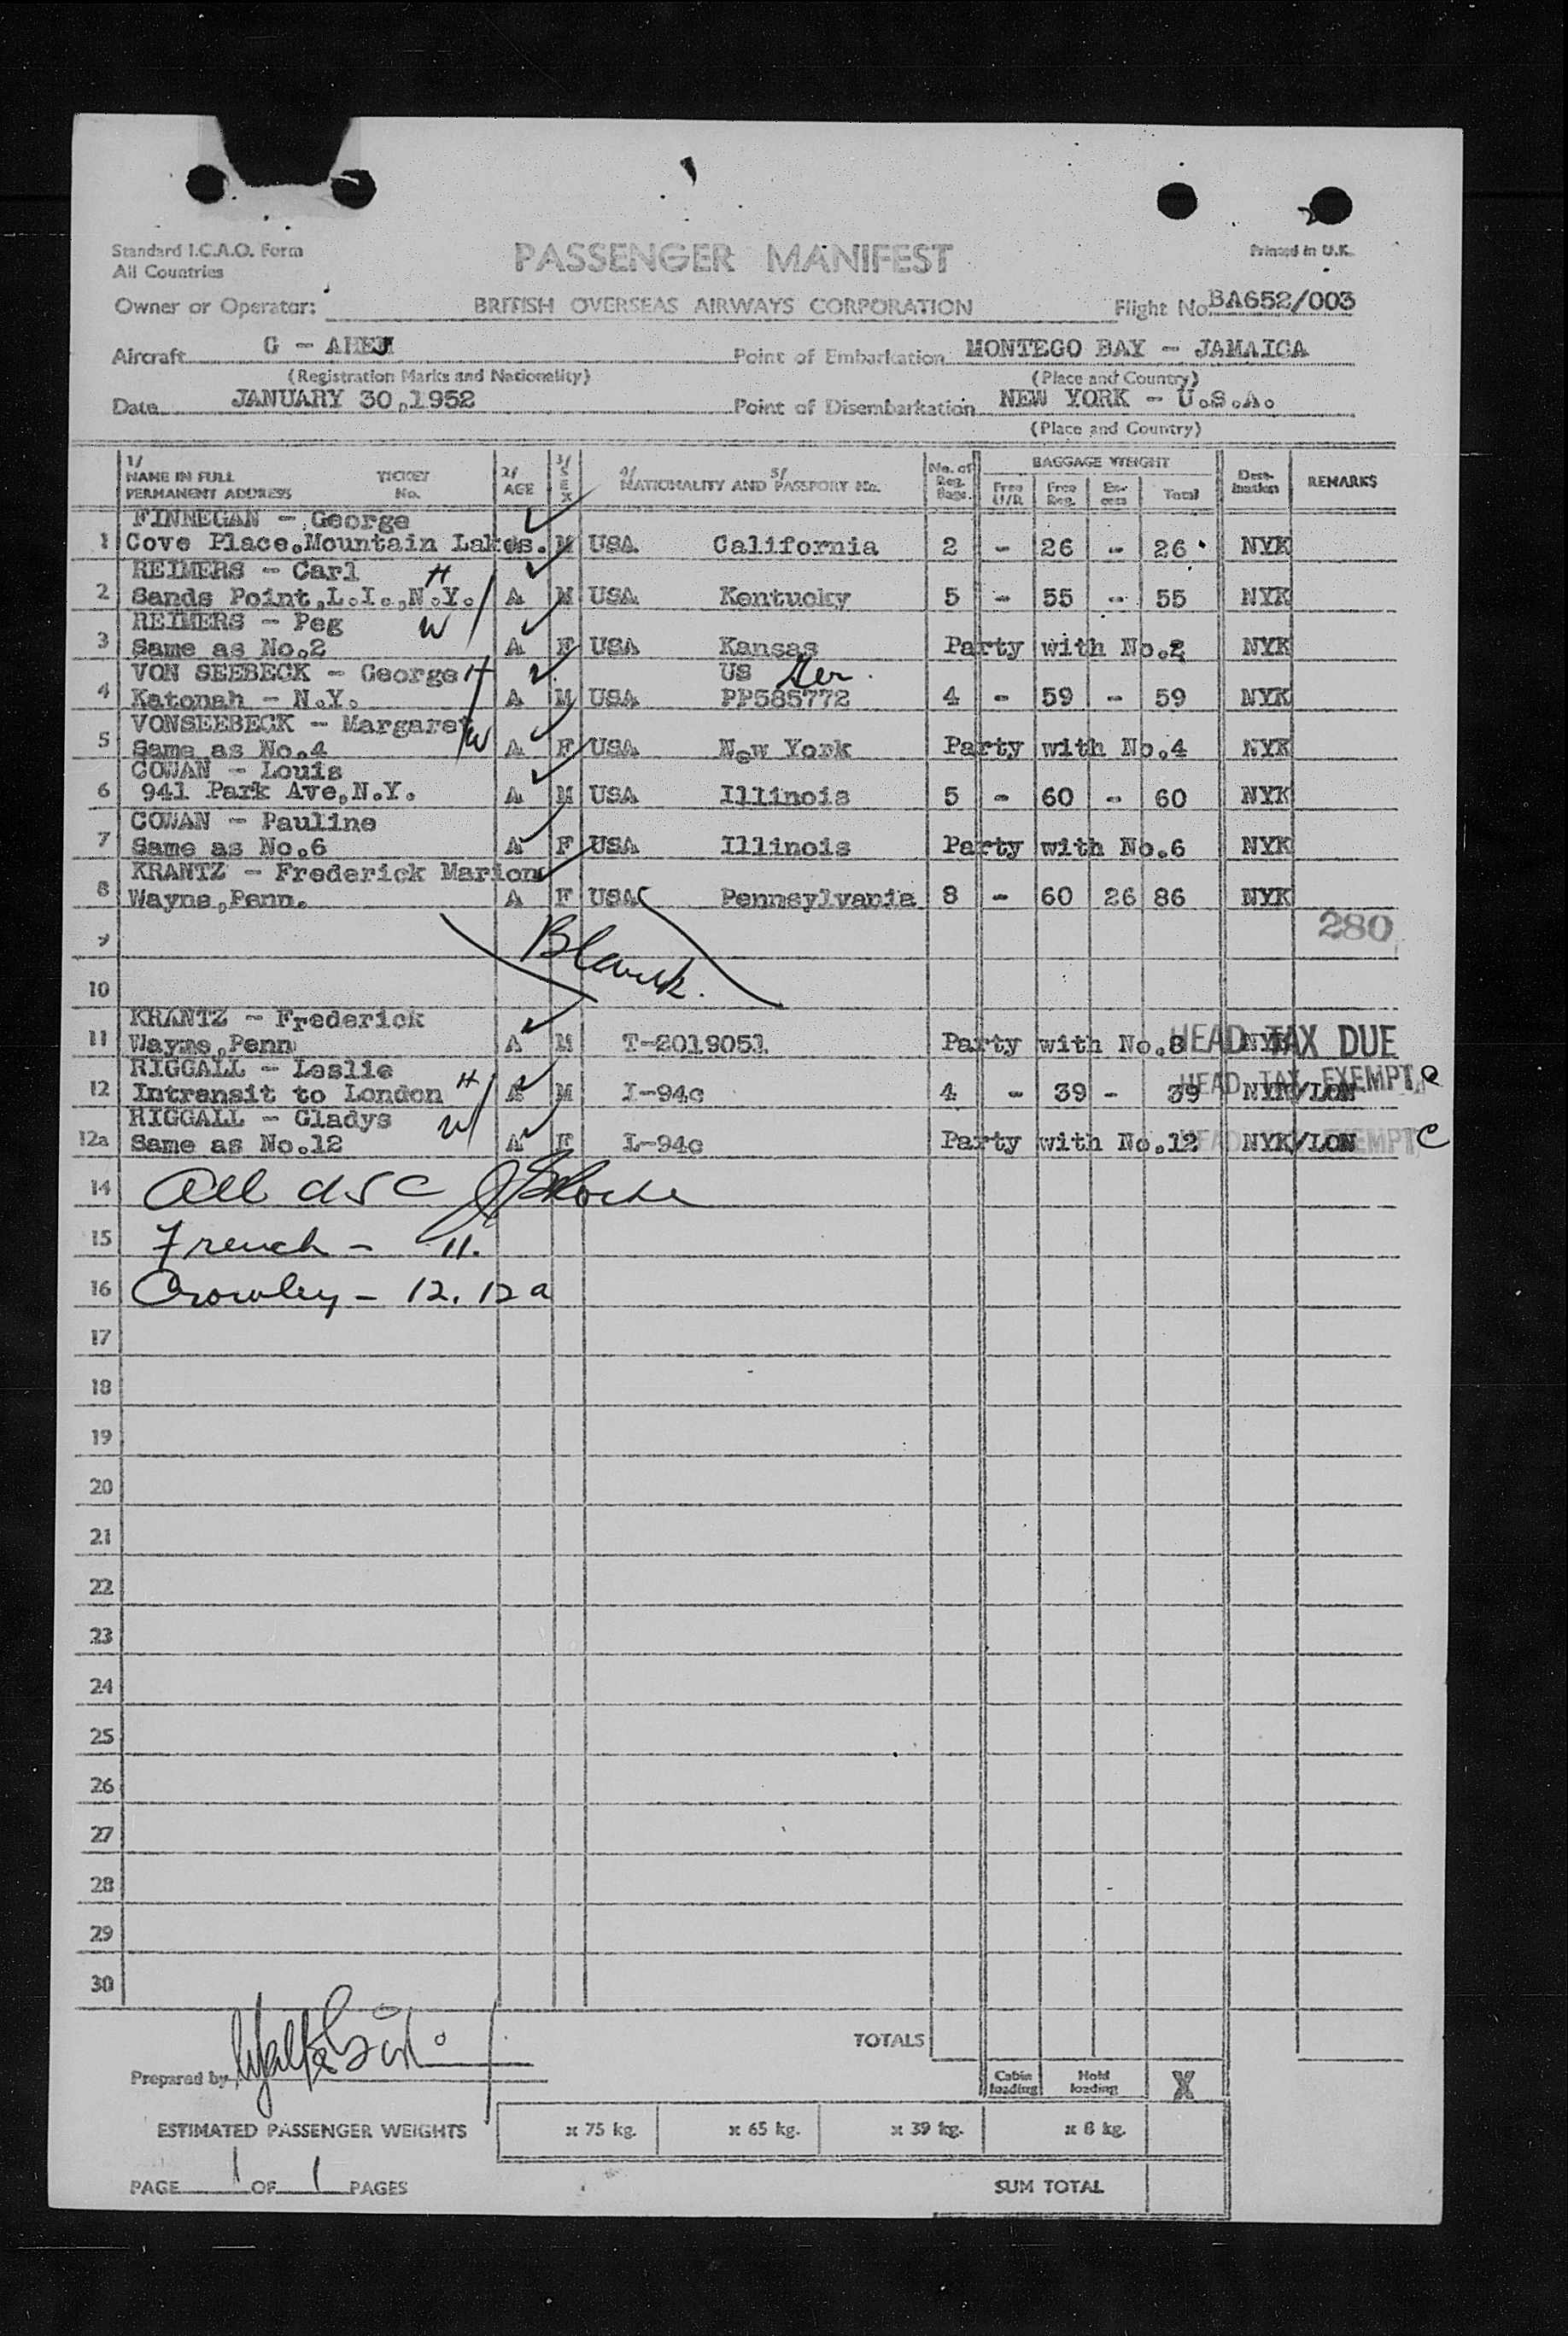 Standard I.C.A.O. Form
All Countries
PASSENGER MANIFEST
Printed in U.K.
Owner or Operator: BRITISH OVERSEAS AIRWAYS CORPORATION Flight No. BA652/003
Aircraft G - Point of Embarkation MONTEGO BAY - JAMAICA
(Registration Marks and Nationality) (Place and Country)
Date JANUARY 30,1952 Point of Disembarkation NEW YORK - U.S.A.
(Place and Country)
1/ NAME IN FULL PERMANENT ADDRESS TICKET No. 2/ AGE 3/ SEX 4/ 5/ NATIONALITY AND PASSPORT No. No. of Reg. Bags. BAGGAGE WEIGHT Free U/R Free Reg. Ex-cess Total Dest-ination REMARKS
FINNEGAN - George
1 Cove Place,Mountain Lakes. M USA California 2 - 26 - 26 NYK
REIMERS - Carl H
2 Sands Point,L.I.,N.Y. A M USA Kentucky 5 - 55 - 55 NYK
REIMERS - Peg W
3 Same as No.2 A F USA Kansas Party with No.2 NYK
VON SEEBECK - George H US Ger.
4 Katonah - N.Y. A M USA PP585772 4 - 59 - 59 NYK
VONSEEBECK - Margaret W
5 Same as No.4 A F USA New York Party with No.4 NYK
COWAN - Louis
6 941 Park Ave,N.Y. A M USA Illinois 5 - 60 - 60 NYK
COWAN - Pauline
7 Same as No.6 A F USA Illinois Party with No.6 NYK
KRANTZ - Frederick Marion
8 Wayne,Penn. A F USA Pennsylvania 8 - 60 26 86 NYK
9 Blank. 280
10
KRANTZ - Frederick
11 Wayne,Penn A M T-2019051 Party with No.8 NYK HEAD TAX DUE
RIGGALL - Leslie H
12 Intransit to London A M I-94c 4 - 39 - 39 NYK/LON HEAD TAX EXEMPT C
RIGGALL - Gladys W
12a Same as No.12 A F I-94c Party with No.12 NYK/LON HEAD TAX EXEMPT C
14 All dsc
15 French - 11.
16 Crowley - 12. 12a
17
18
19
20
21
22
23
24
25
26
27
28
29
30
TOTALS
Prepared by
Cabin loading Hold loading X
ESTIMATED PASSENGER WEIGHTS x 75 kg. x 65 kg. x 39 kg. x 8 kg.
PAGE 1 OF 1 PAGES SUM TOTAL